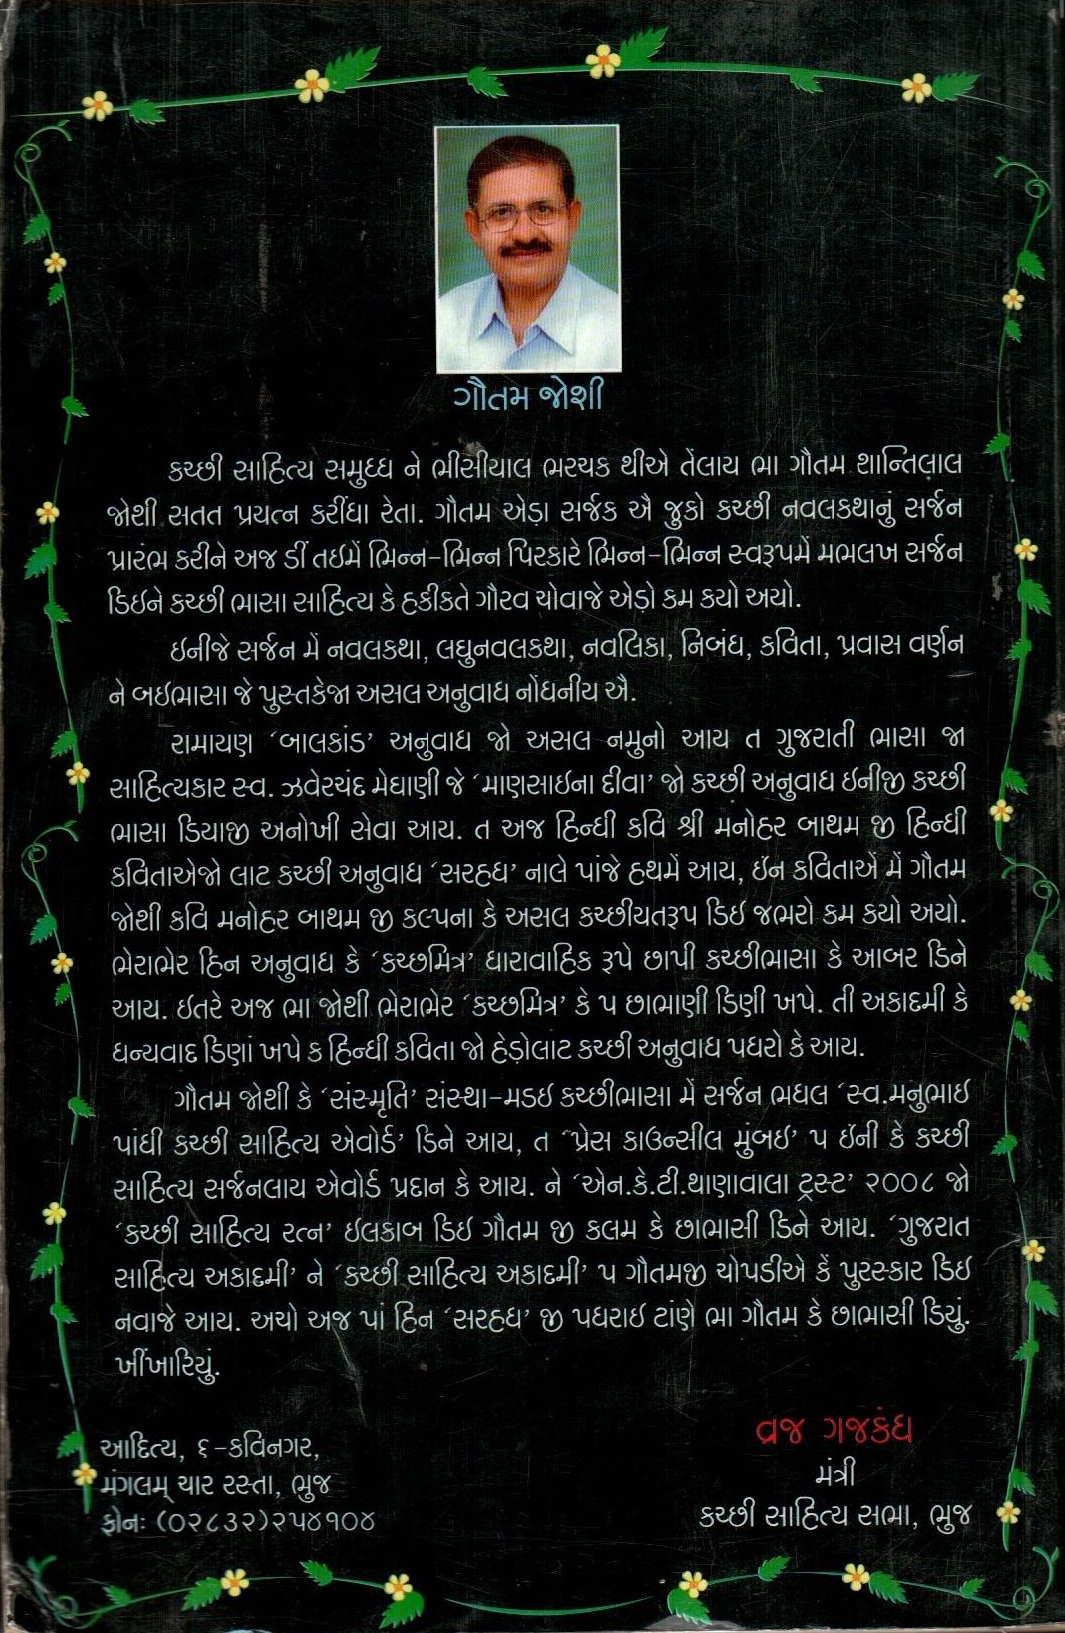 ગૌતમ જોશી
કચ્છી સાહિત્ય સમુધ્ધ ને ભીસીયાલ ભરચક થીએ તેંલાય ભા ગૌતમ શાન્તિલાલ
જોશી સતત પ્રયત્ન કરીંધા રેતા. ગૌતમ એડા સર્જક ઐ જુકો કચ્છી નવલકથાનું સર્જન
પ્રારંભ કરીને અજ ડીં તઇમેં ભિન્ન-ભિન્ન પિરકારે ભિન્ન-ભિન્ન સ્વરૂપમેં મભલખ સર્જન
ડિઇને કચ્છી ભાસા સાહિત્ય કે હકીકતે ગૌરવ ચોવાજે એડો કમ કયો અયો.
ઇનીજે સર્જન મેં નવલકથા, લઘુનવલકથા, નવલિકા, નિબંધ, કવિતા, પ્રવાસ વર્ણન
ને બઇભાસા જે પુસ્તકેજા અસલ અનુવાધ નોંધનીય ઐ.
રામાયણ ‘બાલકાંડ’ અનુવાધ જો અસલ નમુનો આય ત ગુજરાતી ભાસા જા
સાહિત્યકાર સ્વ. ઝવેરચંદ મેઘાણી જે ‘માણસાઇના દીવા’ જો કચ્છી અનુવાધ ઇનીજી કચ્છી
ભાસા ડિયાજી અનોખી સેવા આય. ત અજ હિન્ધી કવિ શ્રી મનોહર બાથમ જી હિન્ધી
કવિતાએજો લાટ કચ્છી અનુવાધ ‘સરહધ’ નાલે પાંજે હથમેં આય, ઇન કવિતાએં મેં ગૌતમ
જોશી કવિ મનોહર બાથમ જી કલ્પના કે અસલ કચ્છીયતરૂપ ડિઇ જભરો કમ કયો અયો.
ભેરાભેર હિન અનુવાધ કે ‘કચ્છમિત્ર’ ધારાવાહિક રૂપે છાપી કચ્છીભાસા કે આબર ડિને
આય. ઇતરે અજ ભા જોશી ભેરાભેર ‘કચ્છમિત્ર’ કે પ છાભાણી ડિણી ખપે. તી અકાદમી કે
ધન્યવાદ ડિણાં ખપે ક હિન્ધી કવિતા જો હેડોલાટ કચ્છી અનુવાધ પધરો કે આય.
ગૌતમ જોશી કે ‘સંસ્મૃતિ’ સંસ્થા-મડઇ કચ્છીભાસા મેં સર્જન ભધલ ‘સ્વ.મનુભાઇ
પાંધી કચ્છી સાહિત્ય એવોર્ડ’ ડિને આય, ત ‘પ્રેસ કાઉન્સીલ મુંબઇ’ પ ઇંની કે કચ્છી
સાહિત્ય સર્જનલાય એવોર્ડ પ્રદાન કે આય. ને ‘એન.કે.ટી.થાણાવાલા ટ્રસ્ટ’ ૨૦૦૮ જો
‘કચ્છી સાહિત્ય રત્ન’ ઇલકાબ ડિઇ ગૌતમ જી કલમ કે છાભાસી ડિને આય. ‘ગુજરાત
સાહિત્ય અકાદમી’ ને ‘કચ્છી સાહિત્ય અકાદમી’ પ ગૌતમજી ચોપડીએ કેં પુરસ્કાર ડિઇ
નવાજે આય. અચો અજ પાં હિન ‘સરહધ’ જી પધરાઇ ટાંણે ભા ગૌતમ કે છાભાસી ડિયું.
ખીંખારિયું.
વ્રજ ગજકંધ
મંત્રી
કચ્છી સાહિત્ય સભા, ભુજ
આદિત્ય, ૬-કવિનગર,
મંગલમ્ ચાર રસ્તા, ભુજ
ફોનઃ (૦૨૮૩૨)૨૫૪૧૦૪